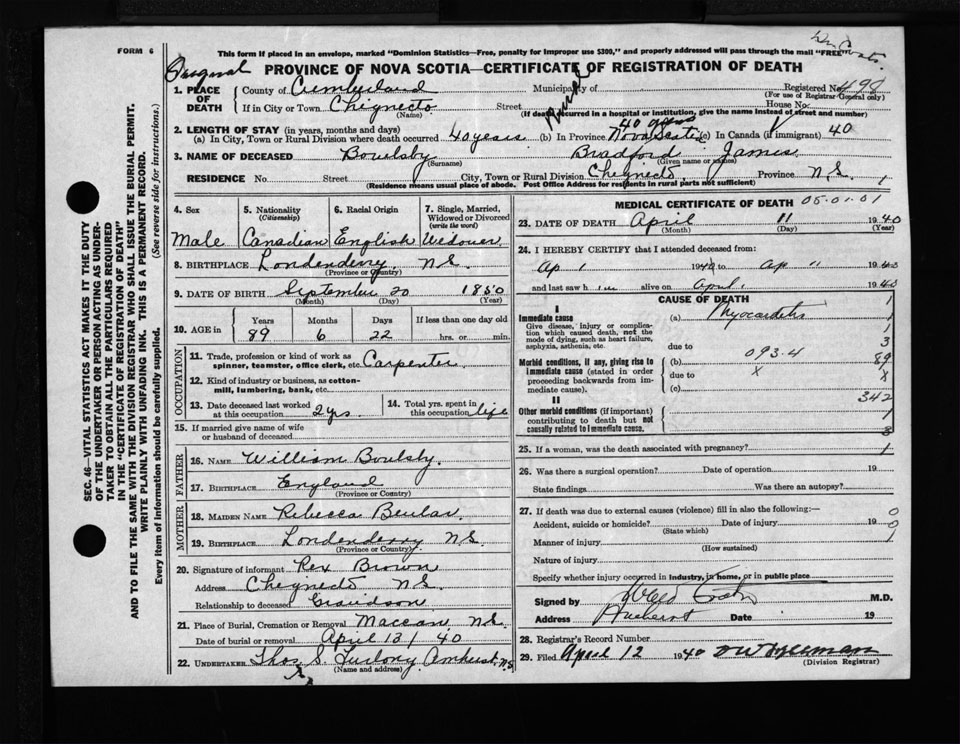 FORM 6
This form if placed in an envelope, marked "Dominion Statistics—Free, penalty for improper use $300," and properly addressed will pass through the mail "FREE"
Original
PROVINCE OF NOVA SCOTIA—CERTIFICATE OF REGISTRATION OF DEATH
1. PLACE OF DEATH County of Cumberland Municipality of Registered No. 498
(For use of Registrar-General only)
If in City or Town Chignecto Street House No.
(Name) (If death occurred in a hospital or institution, give the name instead of street and number)
2. LENGTH OF STAY (in years, months and days)
(a) In City, Town or Rural Division where death occurred 40 years (b) In Province 40 yrs Nova Scotia (c) In Canada (if immigrant) 40
3. NAME OF DECEASED Boulsby Bradford James
(Surname) (Given name or names)
RESIDENCE No. Street City, Town or Rural Division Chignecto, Province N.S. 1
(Residence means usual place of abode. Post Office Address for residents in rural parts not sufficient)
4. Sex 5. Nationality (Citizenship) 6. Racial Origin 7. Single, Married, Widowed or Divorced (write the word)
Male Canadian English Widower
8. BIRTHPLACE Londenderry, N.S.
(Province or Country)
9. DATE OF BIRTH September 20 1850
(Month) (Day) (Year)
10. AGE in Years Months Days If less than one day old
89 6 22 hrs. or min.
OCCUPATION
11. Trade, profession or kind of work as spinner, teamster, office clerk, etc. Carpenter
12. Kind of industry or business, as cotton-mill, lumbering, bank, etc.
13. Date deceased last worked at this occupation 2 yrs 14. Total yrs. spent in this occupation life
15. If married give name of wife or husband of deceased
FATHER
16. NAME William Boulsby.
17. BIRTHPLACE England
(Province or Country)
MOTHER
18. MAIDEN NAME Rebecca
19. BIRTHPLACE Londenderry N.S.
(Province or Country)
20. Signature of informant Rex Brown
Address Chignecto N.S.
Relationship to deceased Grandson
21. Place of Burial, Cremation or Removal Maccan N.S.
Date of burial or removal April 13 / 40
22. UNDERTAKER Thos. S. Furlong Amherst, N.S.
(Name and address)
MEDICAL CERTIFICATE OF DEATH 05.01.01
23. DATE OF DEATH April 11 1940
(Month) (Day) (Year)
24. I HEREBY CERTIFY that I attended deceased from:
Ap 1 1940 Ap 11 1940
and last saw him alive on April 1940
CAUSE OF DEATH 1
I
Immediate cause (a) Myocarditis 1
Give disease, injury or complication which caused death, not the mode of dying, such as heart failure, asphyxia, asthenia, etc.
due to 3
Morbid conditions, if any, giving rise to immediate cause (stated in order proceeding backwards from immediate cause).
(b) 093.4 89
due to X X
(c) 342
II
Other morbid conditions (if important) contributing to death but not causally related to immediate cause. 1
25. If a woman, was the death associated with pregnancy? 1
26. Was there a surgical operation? Date of operation 19
State findings Was there an autopsy?
27. If death was due to external causes (violence) fill in also the following:— 0
Accident, suicide or homicide? Date of injury 19 0
(State which) 1
Manner of injury
(How sustained)
Nature of injury
Specify whether injury occurred in industry, in home, or in public place
Signed by M.D.
Address Amherst Date 19
28. Registrar's Record Number
29. Filed April 12 1940
(Division Registrar)
SEC. 46—VITAL STATISTICS ACT MAKES IT THE DUTY
OF THE UNDERTAKER OR PERSON ACTING AS UNDER-
TAKER TO OBTAIN ALL THE PARTICULARS REQUIRED
IN THE "CERTIFICATE OF REGISTRATION OF DEATH"
AND TO FILE THE SAME WITH THE DIVISION REGISTRAR WHO SHALL ISSUE THE BURIAL PERMIT.
WRITE PLAINLY WITH UNFADING INK. THIS IS A PERMANENT RECORD.
Every item of information should be carefully supplied. (See reverse side for instructions.)